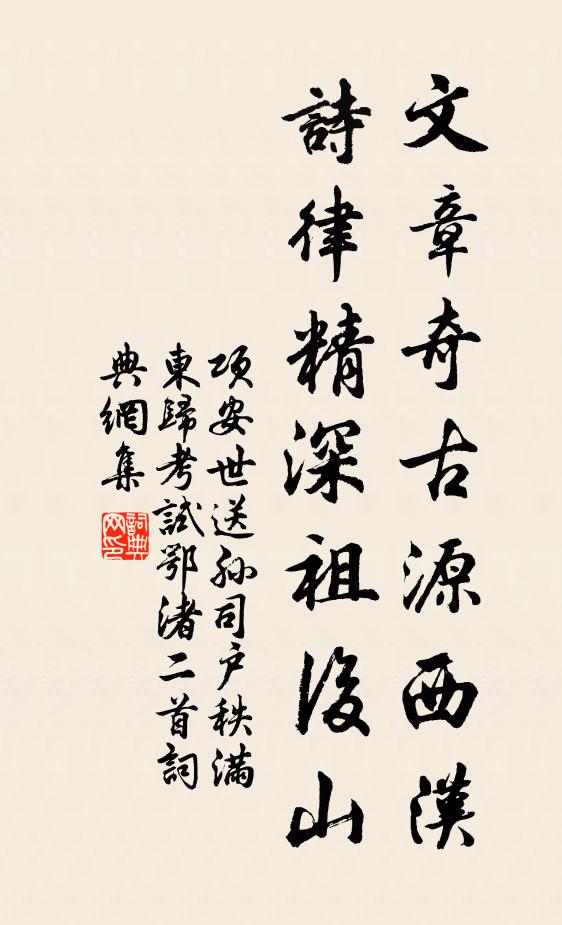 文章奇古源西漢
詩律精深祖後山
項安世送孫司戶秩滿
東歸考試鄂渚二首詞
典網集
詞典
网印